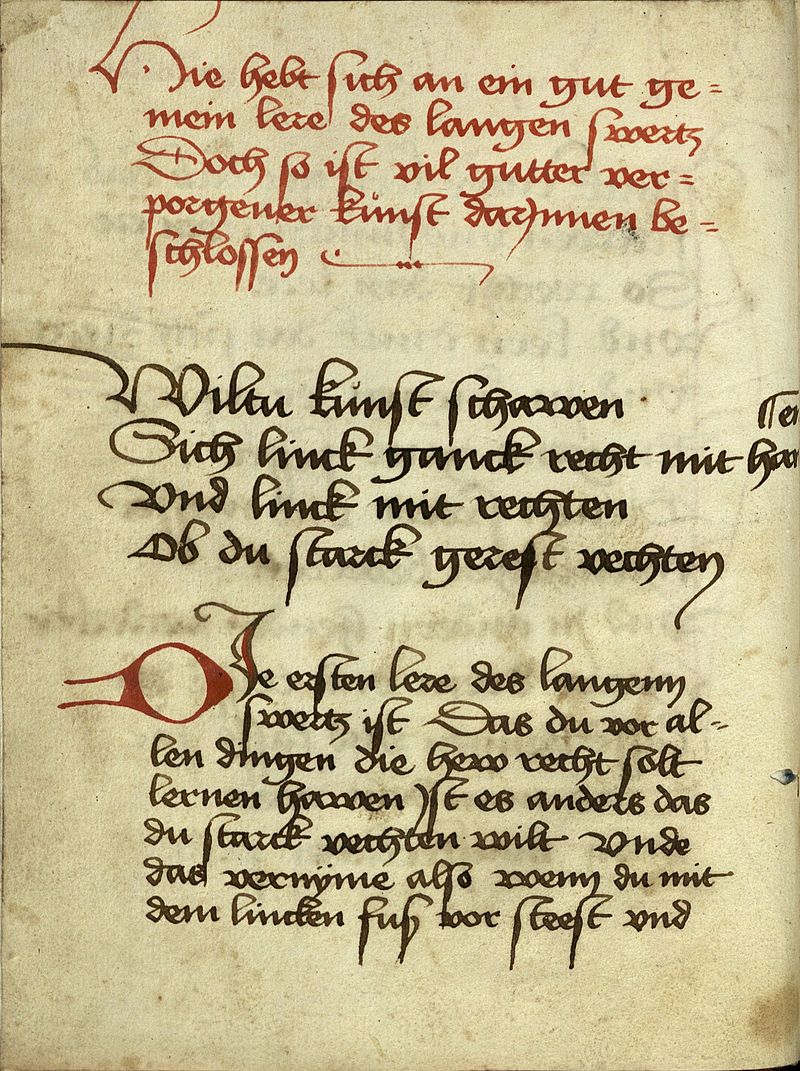 Hie hebt sich an ein gut ge=
mein lere des langen swertz
Doch so ist vil gutter ver=
porgener kůnst darJnnen be=
schlossen
Wiltu kůnst schawen
Sich linck ganck recht mit haw
Vnd linck mit rechten
Ob du starck gerest vechten
DJe ersten lere des langenn
swertz ist Das du vor al=
len dingen die hew recht solt
lernen hawen Jst es anders das
du starck vechten wilt Vnde
das vernÿme also wenn du mit
dem lincken fuß vor steest vnd